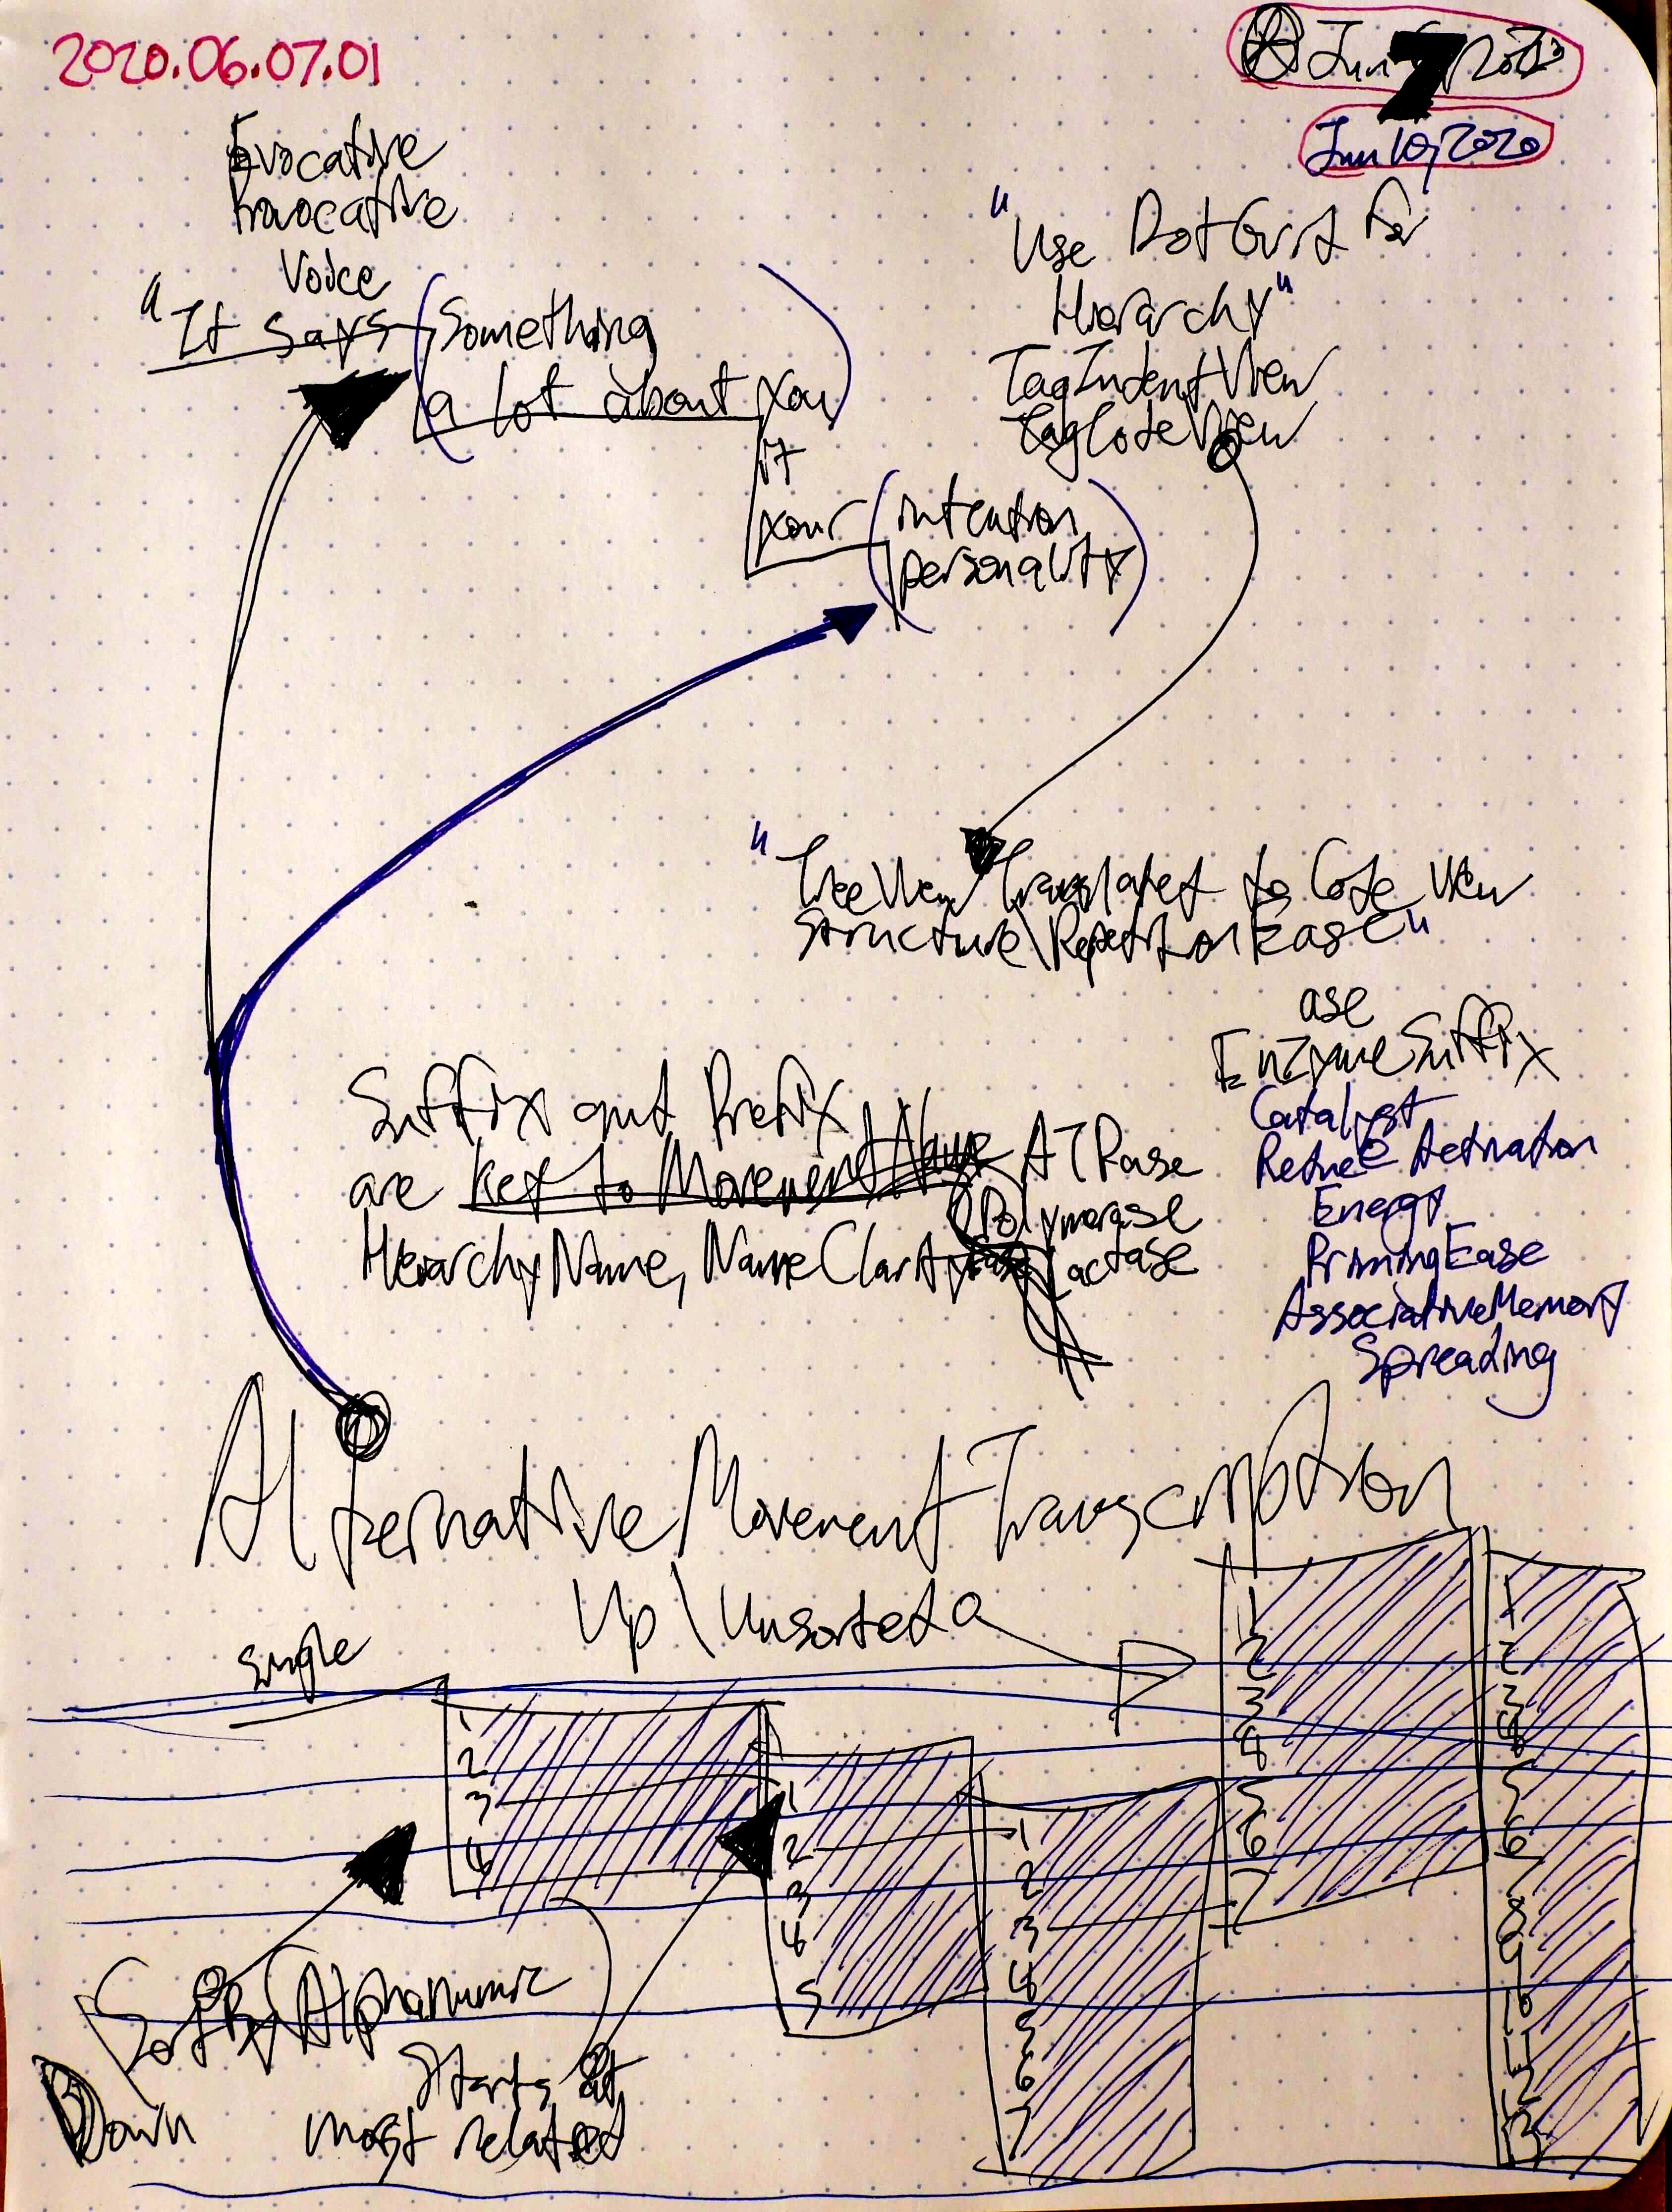 2020.06.07.01
Jun 7, 2020
Jun 10, 2020
Evocative
Provocative
Voice
"It says (Something
a lot about you)
if
your (intention
personality)
"Use Dot Grid for
Hierarchy"
TagIndentView
TagCodeView
"TreeView Translated to Code View
Structure\RepetitionEase"
ase
EnzymeSuffix
Catalyst
Reduce Activation
Energy
PrimingEase
AssociativeMemory
Spreading
Suffix and Prefix
are key to MovementName
HierarchyName, NameClarity
ATPase
Polymerase
Lactase
AlternativeMovementTranscription
Up\Unsorted
Single
1
2
3
4
1
2
3
4
5
1
2
3
4
5
6
7
1
2
3
4
5
6
7
1
2
3
4
5
6
7
8
9
10
11
12
13
SortBy(Alphanumeric
Down
Starts at
most related